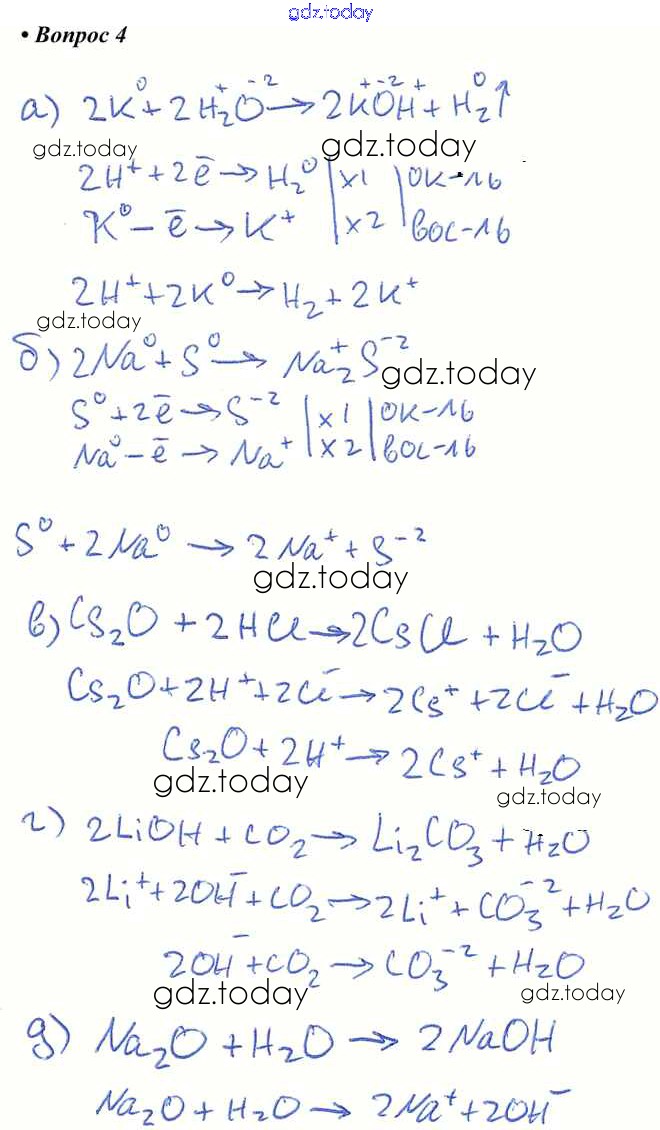 gdz.today
• Вопрос 4
а) 2K⁰ + 2H₂⁺O⁻² → 2K⁺O⁻²H⁺ + H₂⁰↑
gdz.today gdz.today
2H⁺ + 2ē → H₂⁰ | x1 | ок-ль
K⁰ - ē → K⁺ | x2 | вос-ль
2H⁺ + 2K⁰ → H₂ + 2K⁺
gdz.today
б) 2Na⁰ + S⁰ → Na₂⁺S⁻²
gdz.today
S⁰ + 2ē → S⁻² | x1 | ок-ль
Na⁰ - ē → Na⁺ | x2 | вос-ль
S⁰ + 2Na⁰ → 2Na⁺ + S⁻²
gdz.today
в) Cs₂O + 2HCl → 2CsCl + H₂O
Cs₂O + 2H⁺ + 2Cl⁻ → 2Cs⁺ + 2Cl⁻ + H₂O
Cs₂O + 2H⁺ → 2Cs⁺ + H₂O
gdz.today gdz.today
г) 2LiOH + CO₂ → Li₂CO₃ + H₂O
2Li⁺ + 2OH⁻ + CO₂ → 2Li⁺ + CO₃⁻² + H₂O
2OH⁻ + CO₂ → CO₃⁻² + H₂O
gdz.today gdz.today
д) Na₂O + H₂O → 2NaOH
Na₂O + H₂O → 2Na⁺ + 2OH⁻